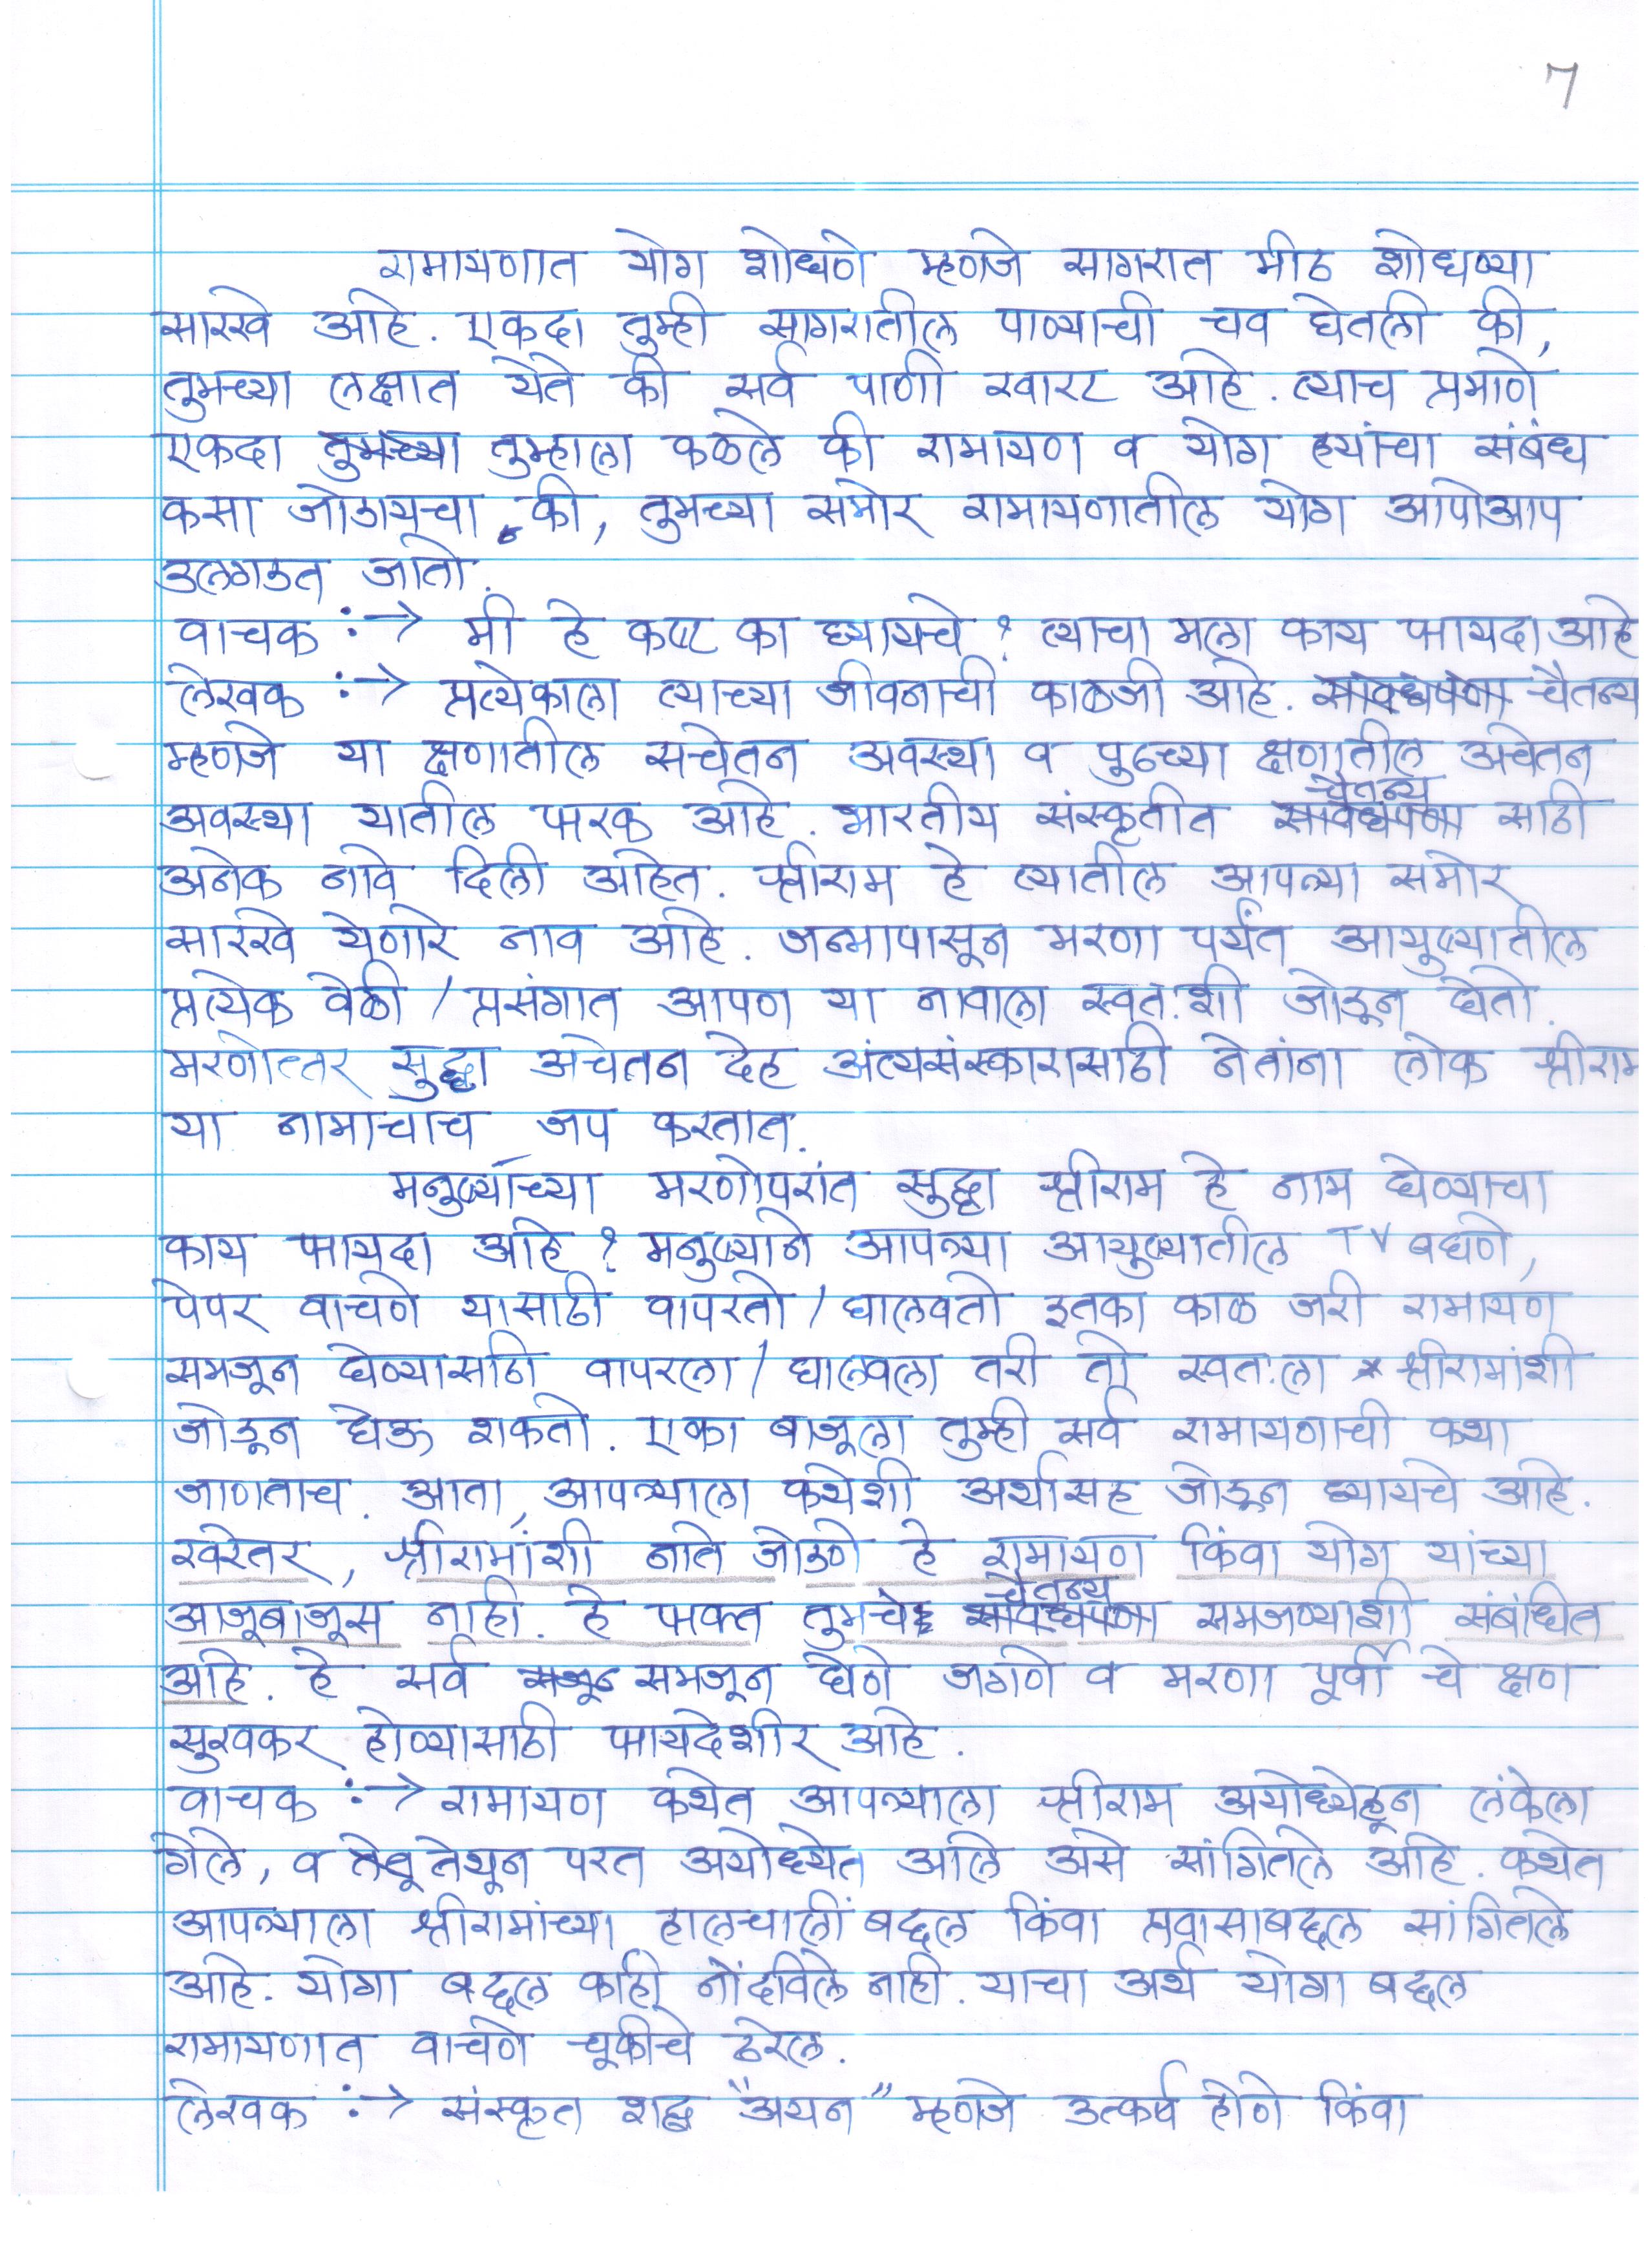 7
रामायणात योग शोधणे म्हणजे सागरात मीठ शोधण्या
सारखे आहे. एकदा तुम्ही सागरातील पाण्याची चव घेतली की,
तुमच्या लक्षात येते की सर्व पाणी खारट आहे. त्याच प्रमाणे
एकदा तुमच्या तुम्हाला कळले की रामायण व योग ह्यांचा संबंध
कसा जोडायचा की, तुमच्या समोर रामायणातील योग आपोआप
उलगडत जातो.
वाचक :→ मी हे कष्ट का घ्यायचे ? त्याचा मला काय फायदा आहे
लेखक :→ प्रत्येकाला त्याच्या जीवनाची काळजी आहे. सावधपणा चैतन्य
म्हणजे या क्षणातील सचेतन अवस्था व पुढच्या क्षणातील अचेतन
चैतन्य
अवस्था यातील फरक आहे. भारतीय संस्कृतीत सावधपणा साठी
अनेक नावे दिली आहेत. श्रीराम हे त्यातील आपल्या समोर
सारखे येणारे नाव आहे. जन्मापासून मरणा पर्यंत आयुष्यातील
प्रत्येक वेळी / प्रसंगात आपण या नावाला स्वत:शी जोडून घेतो.
मरणोत्तर सुद्धा अचेतन देह अंत्यसंस्कारासाठी नेतांना लोक श्रीराम
या नामाचाच जप करतात.
मनुष्याच्या मरणोपरांत सुद्धा श्रीराम हे नाम घेण्याचा
काय फायदा आहे ? मनुष्याने आपल्या आयुष्यातील TV बघणे,
पेपर वाचणे यासाठी वापरतो / घालवतो इतका काळ जरी रामायण
समजून घेण्यासाठी वापरला / घालवला तरी तो स्वत:ला श्रीरामांशी
जोडून घेऊ शकतो. एका बाजूला तुम्ही सर्व रामायणाची कथा
जाणताच. आता, आपल्याला कथेशी अर्थासह जोडून घ्यायचे आहे.
खरेतर, श्रीरामांशी नाते जोडणे हे रामायण किंवा योग यांच्या
चैतन्य
आजूबाजूस नाही. हे फक्त तुमचे सावधपणा समजण्याशी संबंधित
आहे. हे सर्व समजून घेणे जगणे व मरणा पूर्वी चे क्षण
सुखकर होण्यासाठी फायदेशीर आहे.
वाचक :→ रामायण कथेत आपल्याला श्रीराम अयोध्येहून लंकेला
गेले, व तेथून परत अयोध्येत आले असे सांगितले आहे. कथेत
आपल्याला श्रीरामांच्या हालचालीं बद्दल किंवा प्रवासाबद्दल सांगितले
आहे. योगा बद्दल काही नोंदविले नाही. याचा अर्थ योगा बद्दल
रामायणात वाचणे चूकीचे ठरेल.
लेखक :→ संस्कृत शब्द "अयन" म्हणजे उत्कर्ष होणे किंवा